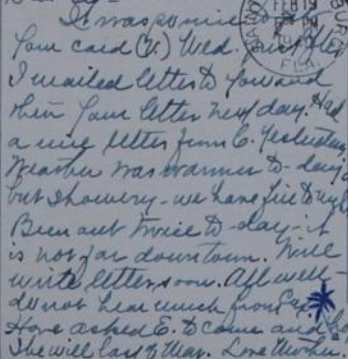 It was so nice to
Your card (V.) Wed. just after
I mailed letter to you and
then your letter next day. Had
a nice letter from C. yesterday
Weather was warmer to-day
but showery - we have fire
Been out twice to-day - it
is not far down town. Will
write letter soon. All well -
do not hear much from
Have asked E. to come and
she will last of Mar. Love Mother.
FEB 19
FLA.